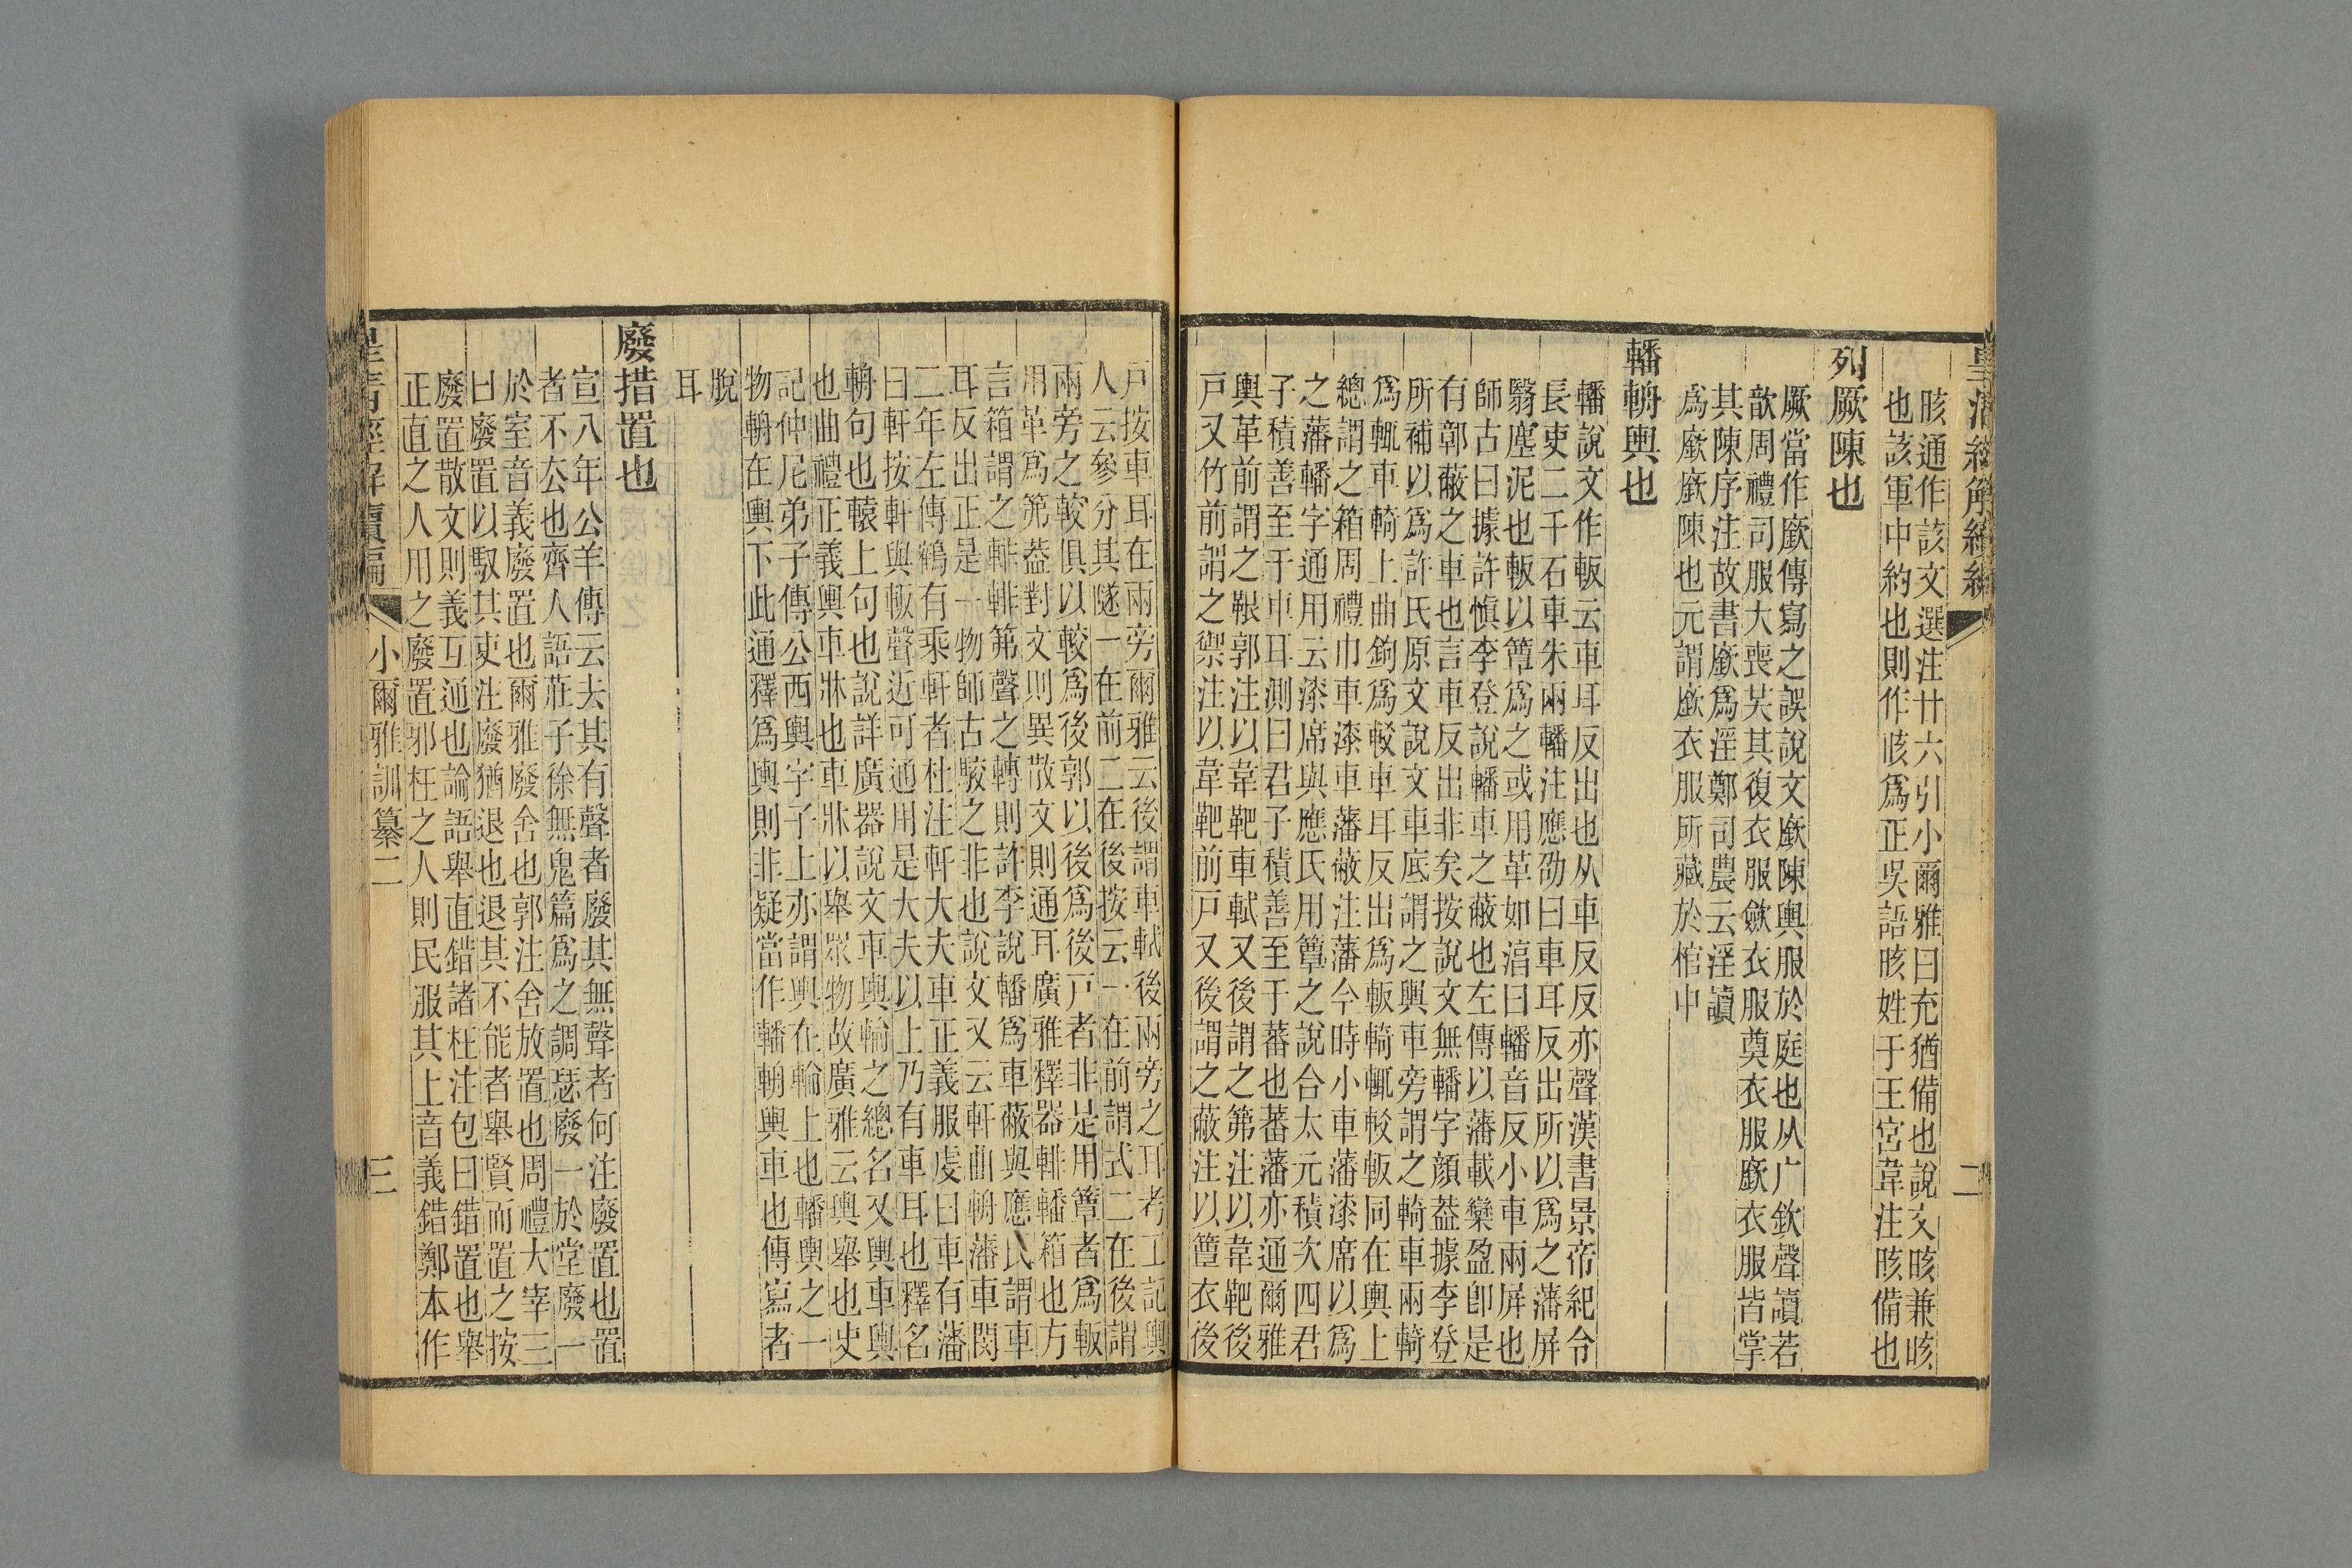 晐通作該文選注廿六引小爾雅曰充猶備也說文晐兼晐
也該軍中約也則作晐爲正吳語晐姓于王宮韋注晐備也
列廞陳也
廞當作廞傳寫之誤說文廞陳輿服於庭也从广欽聲讀若
歆周禮司服大喪共其復衣服斂衣服奠衣服廞衣服皆掌
其陳序注故書廞爲淫鄭司農云淫讀
爲廞廞陳也元謂廞衣服所藏於棺中
轓輈輿也
轓說文作䡊云車耳反出也从車反反亦聲漢書景帝紀令
長吏二千石車朱兩轓注應劭曰車耳反出所以爲之藩屏
翳塵泥也䡊以簟爲之或用革如淳曰轓音反小車兩屏也
師古曰據許愼李登說轓車之蔽也左傳以藩載欒盈卽是
有鄣蔽之車也言車反出非矣按說文無轓字顏葢據李登
所補以爲許氏原文說文車底謂之輿車旁謂之輢車兩輢
爲輒車輢上曲鉤爲較車耳反出爲䡊輢輒較䡊同在輿上
總謂之箱周禮巾車漆車藩蔽注藩今時小車藩漆席以爲
之藩轓字通用云漆席與應氏用簟之說合太元積次四君
子積善至于車耳測曰君子積善至于蕃也蕃藩亦通爾雅
輿革前謂之鞎郭注以韋靶車軾又後謂之笰注以韋靶後
戸又竹前謂之禦注以韋靶前戸又後謂之蔽注以簟衣後
戸按車耳在兩旁爾雅云後謂車軾後兩旁之耳考工記輿
人云參分其隧一在前二在後按云一在前謂式二在後謂
兩旁之較俱以較爲後郭以後爲後戸者非是用簟者爲䡊
用革爲笰葢對文則異散文則通耳廣雅釋器𨌰轓箱也方
言箱謂之𨌰𨌰笰聲之轉則許李說轓爲車蔽與應氏謂車
耳反出正是一物師古駮之非也說文又云軒曲輈藩車閔
二年左傳鶴有乘軒者杜注軒大夫車正義服虔曰車有藩
曰軒按軒與䡊聲近可通用是大夫以上乃有車耳也釋名
輈句也轅上句也說詳廣器說文車輿輪之總名又輿車輿
也曲禮正義輿車牀也車牀以舉眾物故廣雅云輿舉也史
記仲尼弟子傳公西輿字子上亦謂輿在輪上也轓輿之一
物輈在輿下此通釋爲輿則非疑當作轓輈輿車也傳寫者
脫
耳
廢措置也
宣八年公羊傳云去其有聲者廢其無聲者何注廢置也置
者不去也齊人語莊子徐無鬼篇爲之調瑟廢一於堂廢一
於室音義廢置也爾雅廢舍也郭注舍放置也周禮大宰三
曰廢置以馭其吏注廢猶退也退其不能者舉賢而置之按
廢置散文則義互通也論語舉直錯諸枉注包曰錯置也舉
正直之人用之廢置邪枉之人則民服其上音義錯鄭本作
皇清經解續編
小爾雅訓纂二
三